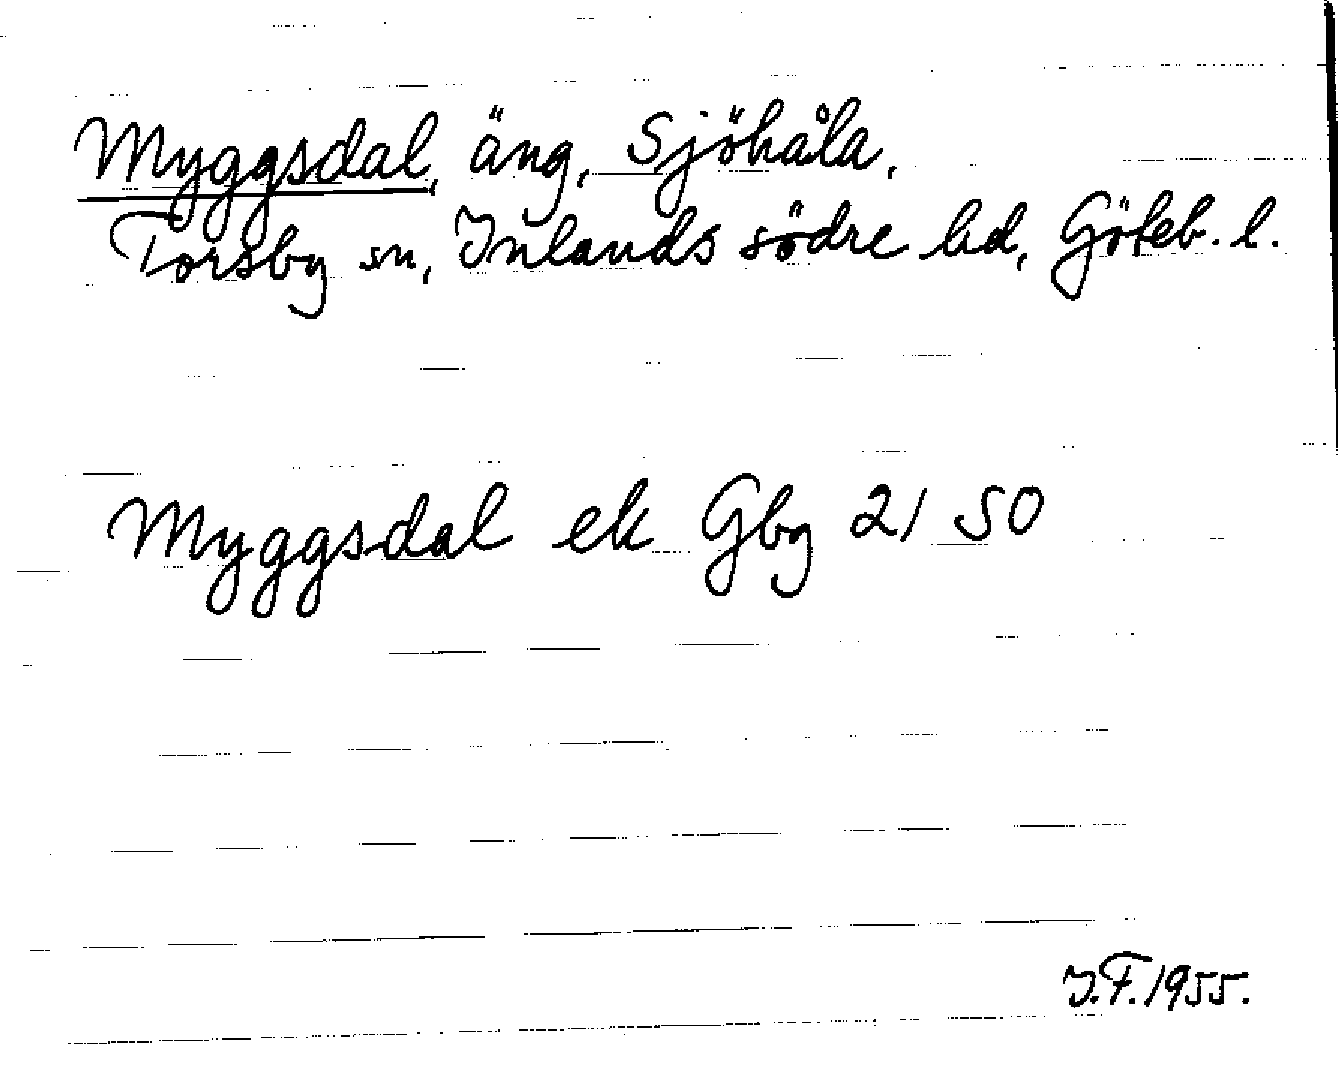 Myggsdal, äng, Sjöhåla,
Torsby sn, Inlands södre hd, Göteb. l.
Myggsdal ek Gby 21 50
J.F. 1955.